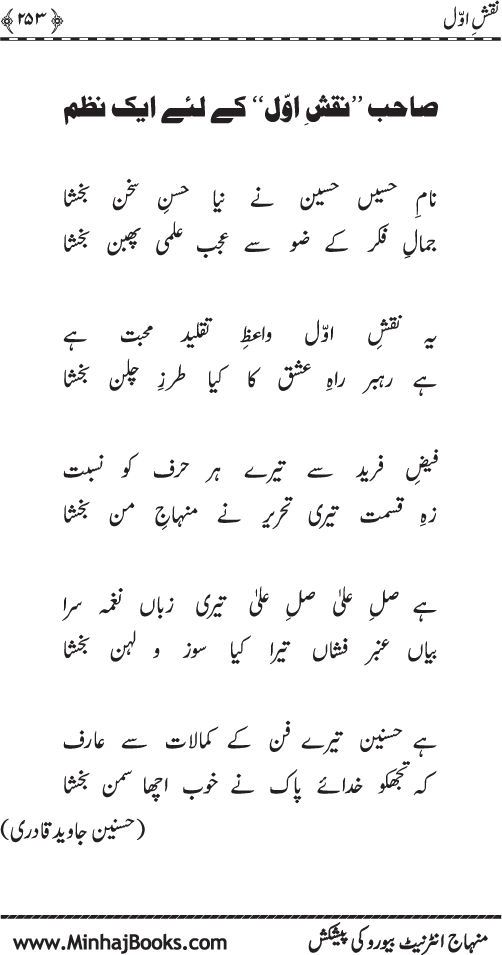 نقشِ اوّل ﴿۲۵۳﴾
صاحب ’’نقشِ اوّل‘‘ کے لئے ایک نظم
نامِ حسیں حسین نے نیا حسنِ سخن بخشا
جمالِ فکر کے ضو سے عجب علمی پھبن بخشا
یہ نقشِ اوّل واعظِ تقلید محبت ہے
ہے رہبر راہِ عشق کا کیا طرزِ چلن بخشا
فیضِ فرید سے تیرے ہر حرف کو نسبت
زہِ قسمت تیری تحریر نے منہاجِ من بخشا
ہے صلِ علیٰ صلِ علیٰ تیری زباں نغمہ سرا
بیاں عنبر فشاں تیرا کیا سوز و لہن بخشا
ہے حسنین تیرے فن کے کمالات سے عارف
کہ تجھکو خدائے پاک نے خوب اچھا سمن بخشا
(حسنین جاوید قادری)
منہاج انٹرنیٹ بیورو کی پیشکش www.MinhajBooks.com